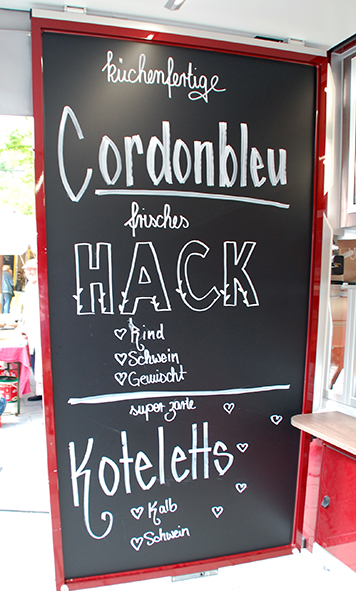 küchenfertige
Cordonbleu
frisches
HACK
♡ Rind
♡ Schwein
♡ Gemischt
super zarte
Koteletts
♡ Kalb
♡ Schwein